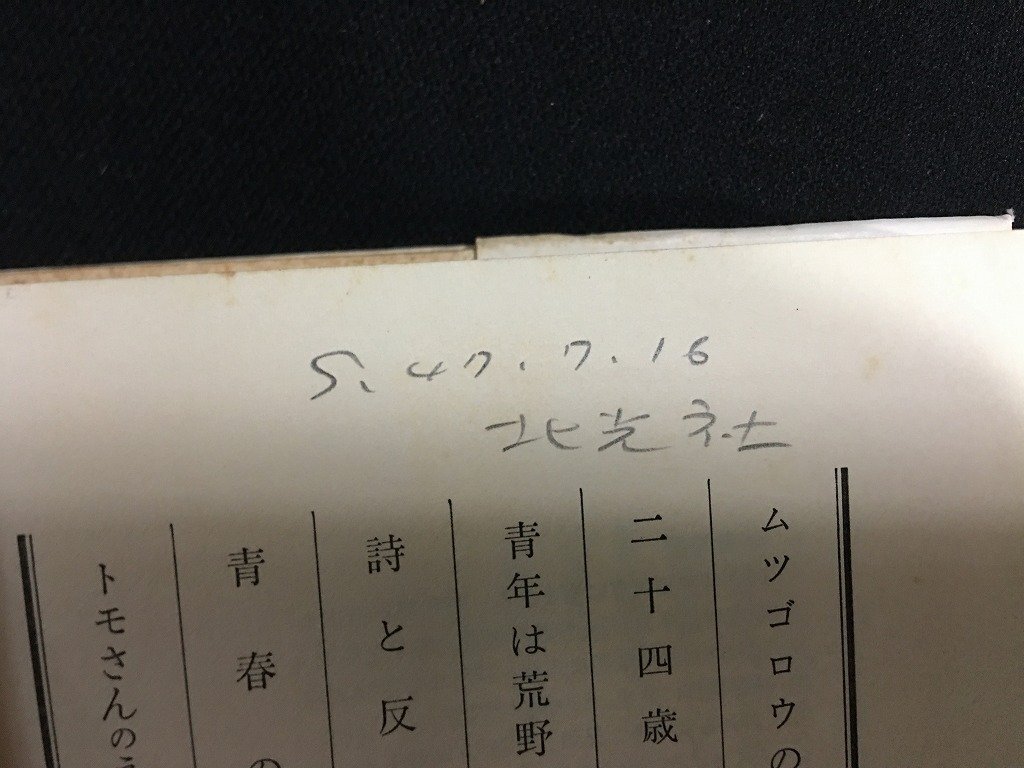 S、47.7.16
北光社
ムツゴロウの
二十四歳
青年は荒野
詩と反
青春の
トモさんの